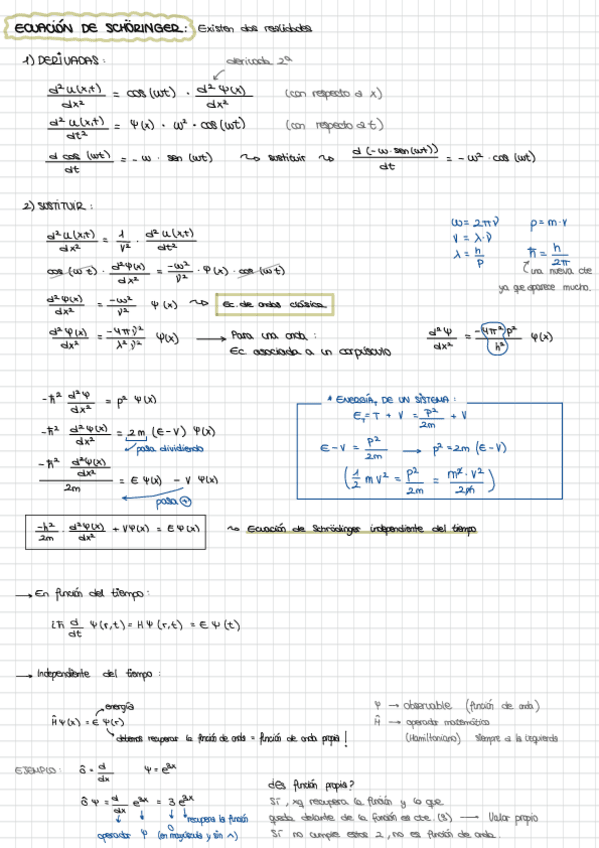 ECUACIÓN DE SCHÖRINGER: Existen dos realidades
1) DERIVADAS: derivada 2ª
d²U(x,t)/dx² = cos(ωt) · d²Ψ(x)/dx² (con respecto a x)
d²U(x,t)/dt² = Ψ(x) · ω² · cos(ωt) (con respecto a t)
d cos(ωt)/dt = -ω · sen(ωt) ~> sustituir ~> d(-ω·sen(ωt))/dt = -ω² · cos(ωt)
2) SUSTITUIR:
d²U(x,t)/dx² = 1/v² · d²U(x,t)/dt²
ω = 2πν p = m·v
v = λ·ν
λ = h/p ħ = h/2π
una nueva cte
ya que aparece mucho.
cos(ωt) · d²Ψ(x)/dx² = -ω²/v² · Ψ(x) · cos(ωt)
d²Ψ(x)/dx² = -ω²/v² Ψ(x) ~> Ec. de ondas clásica
d²Ψ(x)/dx² = -4π²ν²/λ²ν² Ψ(x) → Para una onda:
Ec. asociada a un corpúsculo
d²Ψ/dx² = -4π²p²/h² Ψ(x)
-ħ² d²Ψ/dx² = p² Ψ(x)
-ħ² d²Ψ(x)/dx² = 2m (E-V) Ψ(x)
pasa dividiendo
-ħ² d²Ψ(x)/dx² / 2m = E Ψ(x) - V Ψ(x)
pasa +
* ENERGÍA DE UN SISTEMA:
E = T + V = p²/2m + V
E-V = p²/2m → p² = 2m (E-V)
(1/2 m v² = p²/2m = m²·v²/2m)
-ħ²/2m · d²Ψ(x)/dx² + VΨ(x) = EΨ(x) ~> Ecuación de Schrödinger independiente del tiempo
→ En función del tiempo:
iħ d/dt Ψ(r,t) = HΨ(r,t) = EΨ(t)
→ Independiente del tiempo:
energía
ĤΨ(x) = EΨ(r)
debemos recuperar la función de onda = función de onda propia!
Ψ → observable (función de onda)
Ĥ → operador matemático
(Hamiltoniano) siempre a la izquierda
EJEMPLO: ô = d/dx Ψ = e³ˣ
ôΨ = d/dx e³ˣ = 3 e³ˣ
recupera la función
operador Ψ O (en mayúscula y sin ^)
¿es función propia?
Sí, xq recupera la función y lo que
queda delante de la función es cte. (3) → Valor propio
Si no cumple estos 2, no es función de onda.